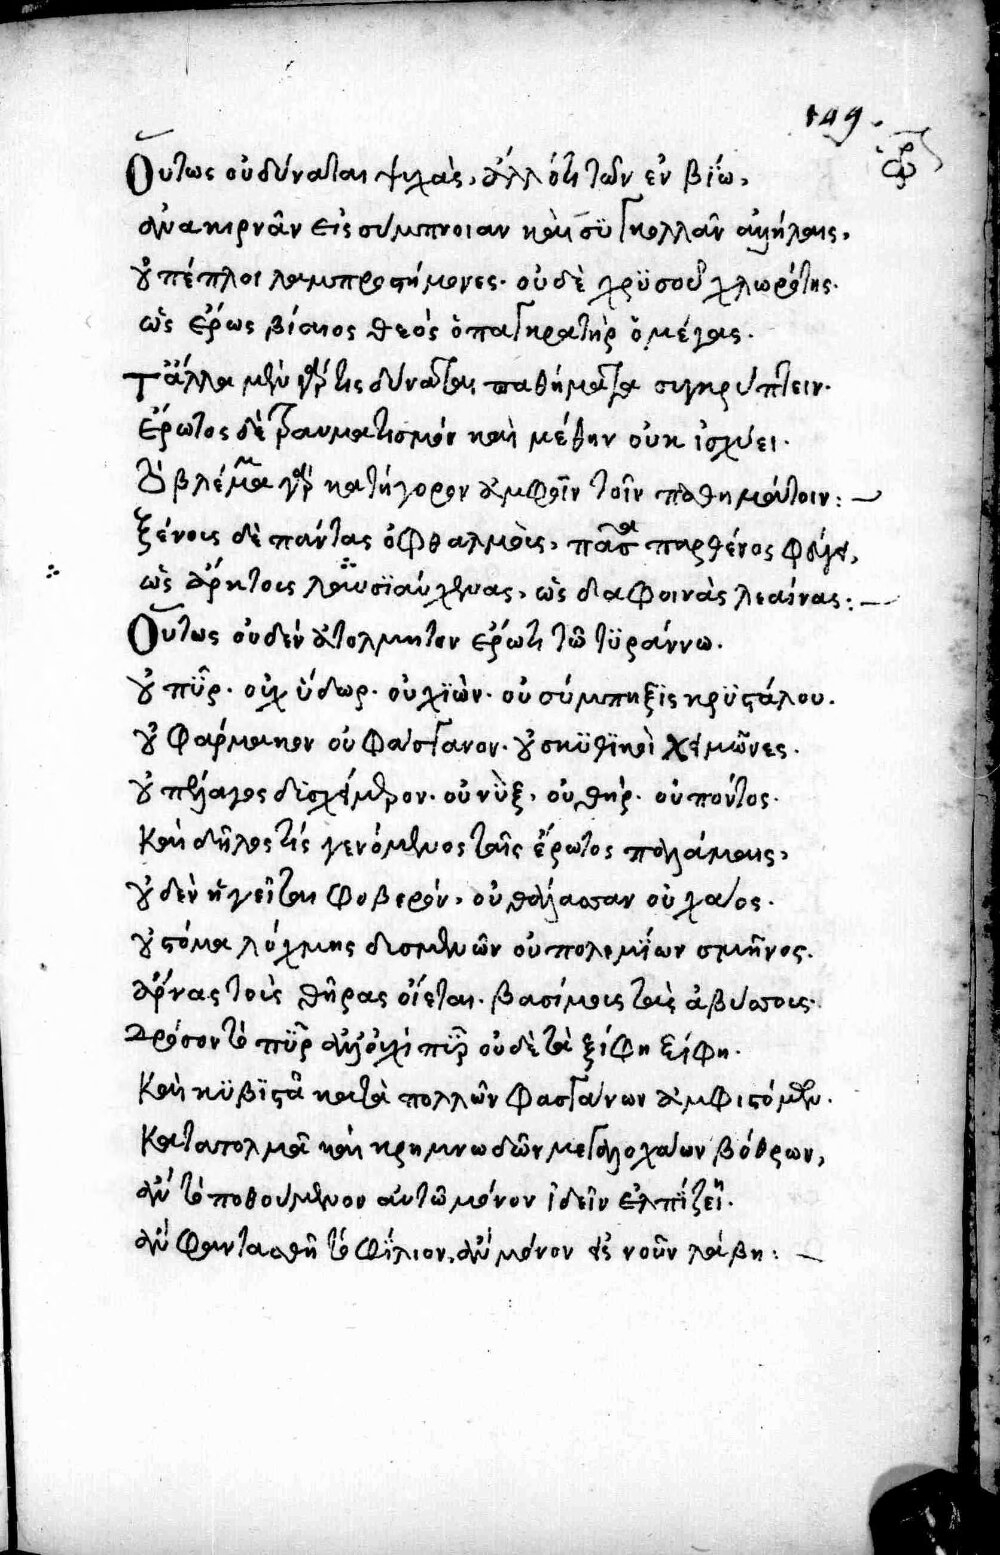 149.
Οὕτως οὐ δύναται ψυχὰς, ἄλλό τι τῶν ἐν βίω,
ἀνακιρνᾶν εἰς σύμπνοιαν καὶ συγκολλᾶν ἀλλήλαις,
οὐ πέπλοι λαμπροσήμονες. οὐδὲ χρϋσοῦ χλωρότης.
ὡς ἔρως βίαιος θεὸς ὁ παγκρατὴρ ὁ μέγας.
Τἆλλα μὲν γάρ τις δύναται παθήματα συγκρύπτειν.
ἔρωτος δὲ τραυματισμὸν καὶ μέθην οὐκ ἰσχύει.
τὸ βλέμμα γὰρ κατήγορον ἀμφοῖν τοῖν παθημάτοιν: —
ξένοις δὲ πάντας ὀφθαλμοῖς, πᾶσα παρθένος φεύγει,
ὡς ἄρκτοις λασϊαύχενας, ὡς δαφοινὰς λεαίνας: —
Οὕτως οὐδὲν ἀτόλμητον ἔρωτι τῶ τϋράννω.
οὐ πῦρ. οὐχ ὕδωρ. οὐ χϊὼν. οὐ σύμπηξϊς κρϋστάλου.
οὐ φάρμακον οὐ φάσγανον. οὐ σκϋθϊκοὶ χειμῶνες.
οὐ πέλαγος δϊσχείμερον. οὐ νὺξ. οὐ θήρ. οὐ πόντος.
Καὶ δῆλος τίς γενόμενος ταῖς ἔρωτος παλάμαις,
οὐδὲν ἡγεῖται φοβερόν, οὐ θάλασσαν οὐ χάος.
οὐ στόμα λόχμης δυσμενῶν οὐ πολεμίων σμῆνος.
ἄρνας τοὺς θῆρας οἴεται. βασίμους τὰς ἀβύσσους.
Δρόσον τὸ πῦρ ἀλλ' οὐχὶ πῦρ οὐδὲ τὰ ξίφη ξίφη.
Καὶ κϋβϊστᾶ κατὰ πολλῶν φασγάνων ἀμφιστόμων.
Κατατολμᾶ καὶ κρημνωδῶν μεγαλοχάων βόθρων,
ἂν τὸ ποθούμενον αὐτῶ μόνον ἰδεῖν ἐλπίζει.
ἂν φαντασθῆ τὸ φίλιον, ἂν μόνον εἰς νοῦν λάβη: —